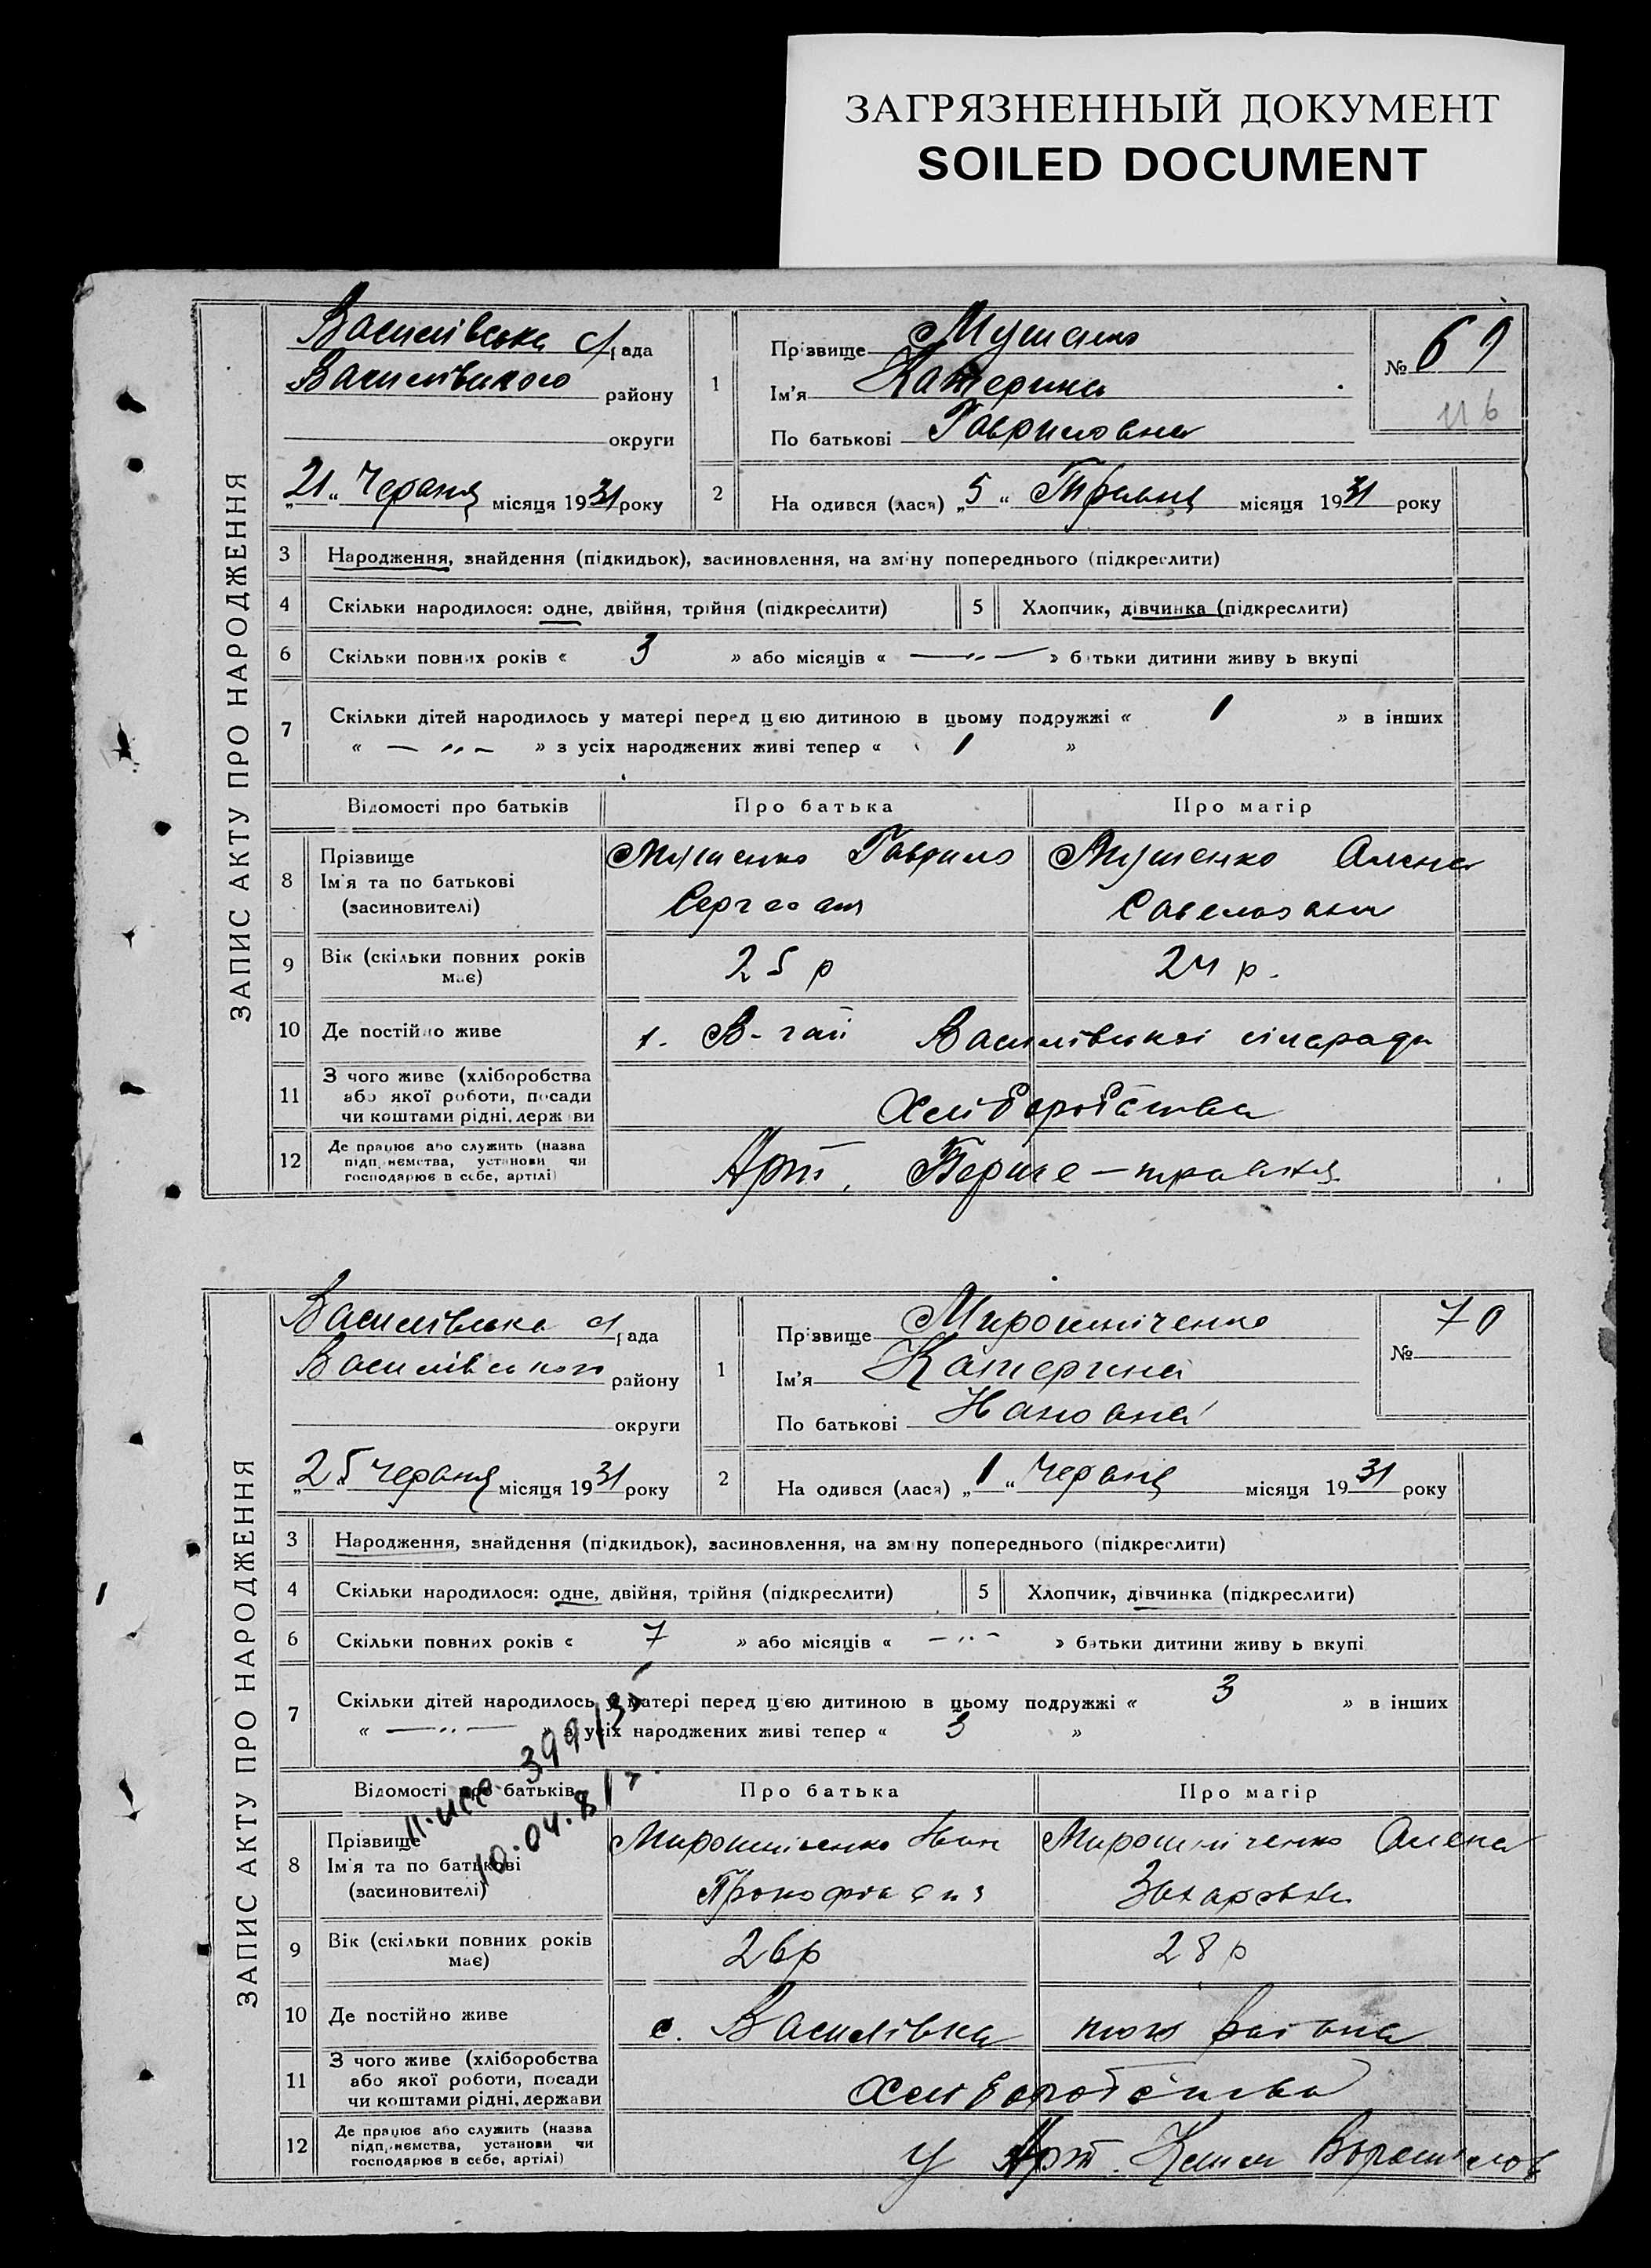 ЗАГРЯЗНЕННЫЙ ДОКУМЕНТ
SOILED DOCUMENT
ЗАПИС АКТУ ПРО НАРОДЖЕННЯ
Василівська с/рада
Василівського району
округи
„21“ Червня місяця 1931 року
1 Прізвище Мушенко
Ім'я Катерина
По батькові Гавриловна
№ 69
116
2 Народився (лася) „5“ Травня місяця 1931 року
3 Народження, знайдення (підкидьок), засиновлення, на зміну попереднього (підкреслити)
4 Скільки народилося: одне, двійня, трійня (підкреслити) 5 Хлопчик, дівчинка (підкреслити)
6 Скільки повних років « 3 » або місяців « — „ — » батьки дитини живуть вкупі
7 Скільки дітей народилось у матері перед цією дитиною в цьому подружжі « 1 » в інших
« — „ — » з усіх народжених живі тепер « 1 »
Відомості про батьків Про батька Про матір
8 Прізвище Ім'я та по батькові (засиновителі) Мушенко Гаврило Мушенко Алена
Савеловна
9 Вік (скільки повних років має) 25 р 24 р.
10 Де постійно живе В-гай Василівської сільради
11 З чого живе (хліборобства або якої роботи, посади чи коштами рідні, держави Хліборобства
12 Де працює або служить (назва підприємства, установи чи господарює в себе, артілі) Арт. Перше-травня
ЗАПИС АКТУ ПРО НАРОДЖЕННЯ
Василівська с/рада
Василівського району
округи
„25“ червня місяця 1931 року
1 Прізвище Мирошніченко
Ім'я Катерина
По батькові Ивановна
№ 70
2 Народився (лася) „1“ Червня місяця 1931 року
3 Народження, знайдення (підкидьок), засиновлення, на зміну попереднього (підкреслити)
4 Скільки народилося: одне, двійня, трійня (підкреслити) 5 Хлопчик, дівчинка (підкреслити)
6 Скільки повних років « 7 » або місяців « — „ — » батьки дитини живуть вкупі
7 Скільки дітей народилось у матері перед цією дитиною в цьому подружжі « 3 » в інших
« — „ — » з усіх народжених живі тепер « 3 »
10.04.81г.
Відомості про батьків Про батька Про матір
8 Прізвище Ім'я та по батькові (засиновителі) Мирошніченко Иван Мирошніченко Алена
Захаровна
9 Вік (скільки повних років має) 26р 28р
10 Де постійно живе с. Василівка того району
11 З чого живе (хліборобства або якої роботи, посади чи коштами рідні, держави Хліборобства
12 Де працює або служить (назва підприємства, установи чи господарює в себе, артілі) У Арт. Клим Ворошилов